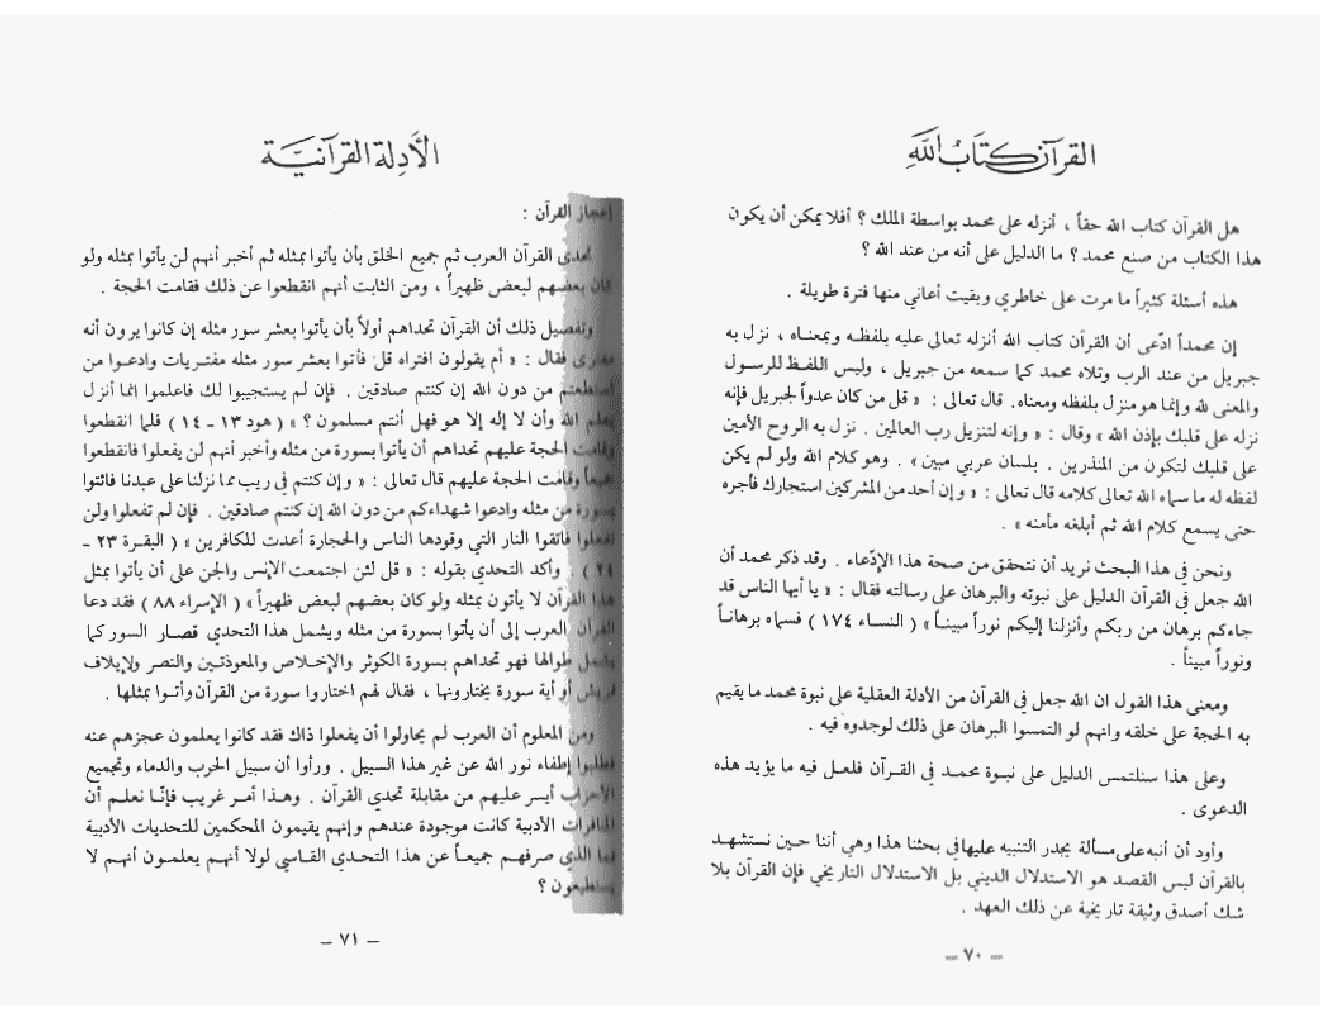 القرآن كتاب الله
هل القرآن كتاب الله حقاً ، أنزله على محمد بواسطة الملك ؟ أفلا يمكن أن يكون
هذا الكتاب من صنع محمد ؟ ما الدليل على أنه من عند الله ؟
هذه أسئلة كثيراً ما مرت على خاطري وبقيت أعاني منها فترة طويلة .
إن محمداً ادّعى أن القرآن كتاب الله أنزله تعالى عليه بلفظه وبمعناه ، نزل به
جبريل من عند الرب وتلاه محمد كما سمعه من جبريل ، وليس اللفظ للرسول
والمعنى لله وإنما هو منزل بلفظه ومعناه. قال تعالى : « قل من كان عدواً لجبريل فإنه
نزله على قلبك بإذن الله » وقال : « وإنه لتنزيل رب العالمين . نزل به الروح الأمين
على قلبك لتكون من المنذرين . بلسان عربي مبين» . وهو كلام الله ولو لم يكن
لفظه له ما سماه الله تعالى كلامه قال تعالى : « وإن أحد من المشركين استجارك فأجره
حتى يسمع كلام الله ثم أبلغه مأمنه » .
ونحن في هذا البحث نريد أن نتحقق من صحة هذا الإدّعاء . وقد ذكر محمد أن
الله جعل في القرآن الدليل على نبوته والبرهان على رسالته فقال : « يا أيها الناس قد
جاءكم برهان من ربكم وأنزلنا إليكم نوراً مبيناً» ( النساء ١٧٤ ) فسماه برهاناً
ونوراً مبيناً .
ومعنى هذا القول ان الله جعل في القرآن من الأدلة العقلية على نبوة محمد ما يقيم
به الحجة على خلقه وانهم لو التمسوا البرهان على ذلك لوجدوه فيه .
وعلى هذا سنلتمس الدليل على نبوة محمد في القرآن فلعل فيه ما يؤيد هذه
الدعوى .
وأود أن أنبه على مسألة يجدر التنبيه عليها في بحثنا هذا وهي أننا حين نستشهد
بالقرآن ليس القصد هو الاستدلال الديني بل الاستدلال التاريخي فإن القرآن بلا
شك أصدق وثيقة تاريخية عن ذلك العهد .
— ٧٠ —
الأدلة القرآنية
إعجاز القرآن :
تحدى القرآن العرب ثم جميع الخلق بأن يأتوا بمثله ثم أخبر أنهم لن يأتوا بمثله ولو
كان بعضهم لبعض ظهيراً ، ومن الثابت أنهم انقطعوا عن ذلك فقامت الحجة .
وتفصيل ذلك أن القرآن تحداهم أولاً بأن يأتوا بعشر سور مثله إن كانوا يرون أنه
مفترى فقال : « أم يقولون افتراه قل فأتوا بعشر سور مثله مفتريات وادعوا من
استطعتم من دون الله إن كنتم صادقين . فإن لم يستجيبوا لك فاعلموا انما أنزل
بعلم الله وأن لا إله إلا هو فهل أنتم مسلمون ؟ » ( هود ١٣ - ١٤ ) فلما انقطعوا
وقامت الحجة عليهم تحداهم أن يأتوا بسورة من مثله وأخبر أنهم لن يفعلوا فانقطعوا
جميعاً وقامت الحجة عليهم قال تعالى : « وإن كنتم في ريب مما نزلنا على عبدنا فائتوا
بسورة من مثله وادعوا شهداءكم من دون الله إن كنتم صادقين . فإن لم تفعلوا ولن
تفعلوا فاتقوا النار التي وقودها الناس والحجارة أعدت للكافرين » ( البقرة ٢٣ -
٢٤ ) . وأكد التحدي بقوله : « قل لئن اجتمعت الإنس والجن على أن يأتوا بمثل
هذا القرآن لا يأتون بمثله ولو كان بعضهم لبعض ظهيراً» ( الإسراء ٨٨ ) فقد دعا
القرآن العرب إلى أن يأتوا بسورة من مثله ويشمل هذا التحدي قصار السور كما
يشمل طوالها فهو تحداهم بسورة الكوثر والإخلاص والمعوذتين والنصر ولإيلاف
قريش أو أية سورة يختارونها ، فقال لهم اختاروا سورة من القرآن وأتوا بمثلها .
ومن المعلوم أن العرب لم يحاولوا أن يفعلوا ذاك فقد كانوا يعلمون عجزهم عنه
فطلبوا إطفاء نور الله عن غير هذا السبيل . ورأوا أن سبيل الحرب والدماء وتجميع
الأحزاب أيسر عليهم من مقابلة تحدي القرآن . وهذا أمر غريب فإنّا نعلم أن
المنافرات الأدبية كانت موجودة عندهم وإنهم يقيمون المحكمين للتحديات الأدبية
فما الذي صرفهم جميعاً عن هذا التحدي القاسي لولا أنهم يعلمون أنهم لا
يستطيعون ؟
— ٧١ —